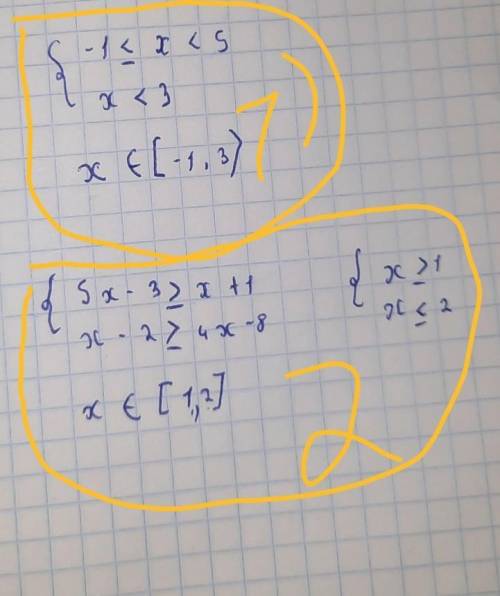 { -1 ≤ x < 5
x < 3
x ∈ [-1, 3) 1)
{ 5x - 3 ≥ x + 1
x - 2 ≥ 4x - 8
{ x ≥ 1
x ≤ 2
x ∈ [1, 2]
2